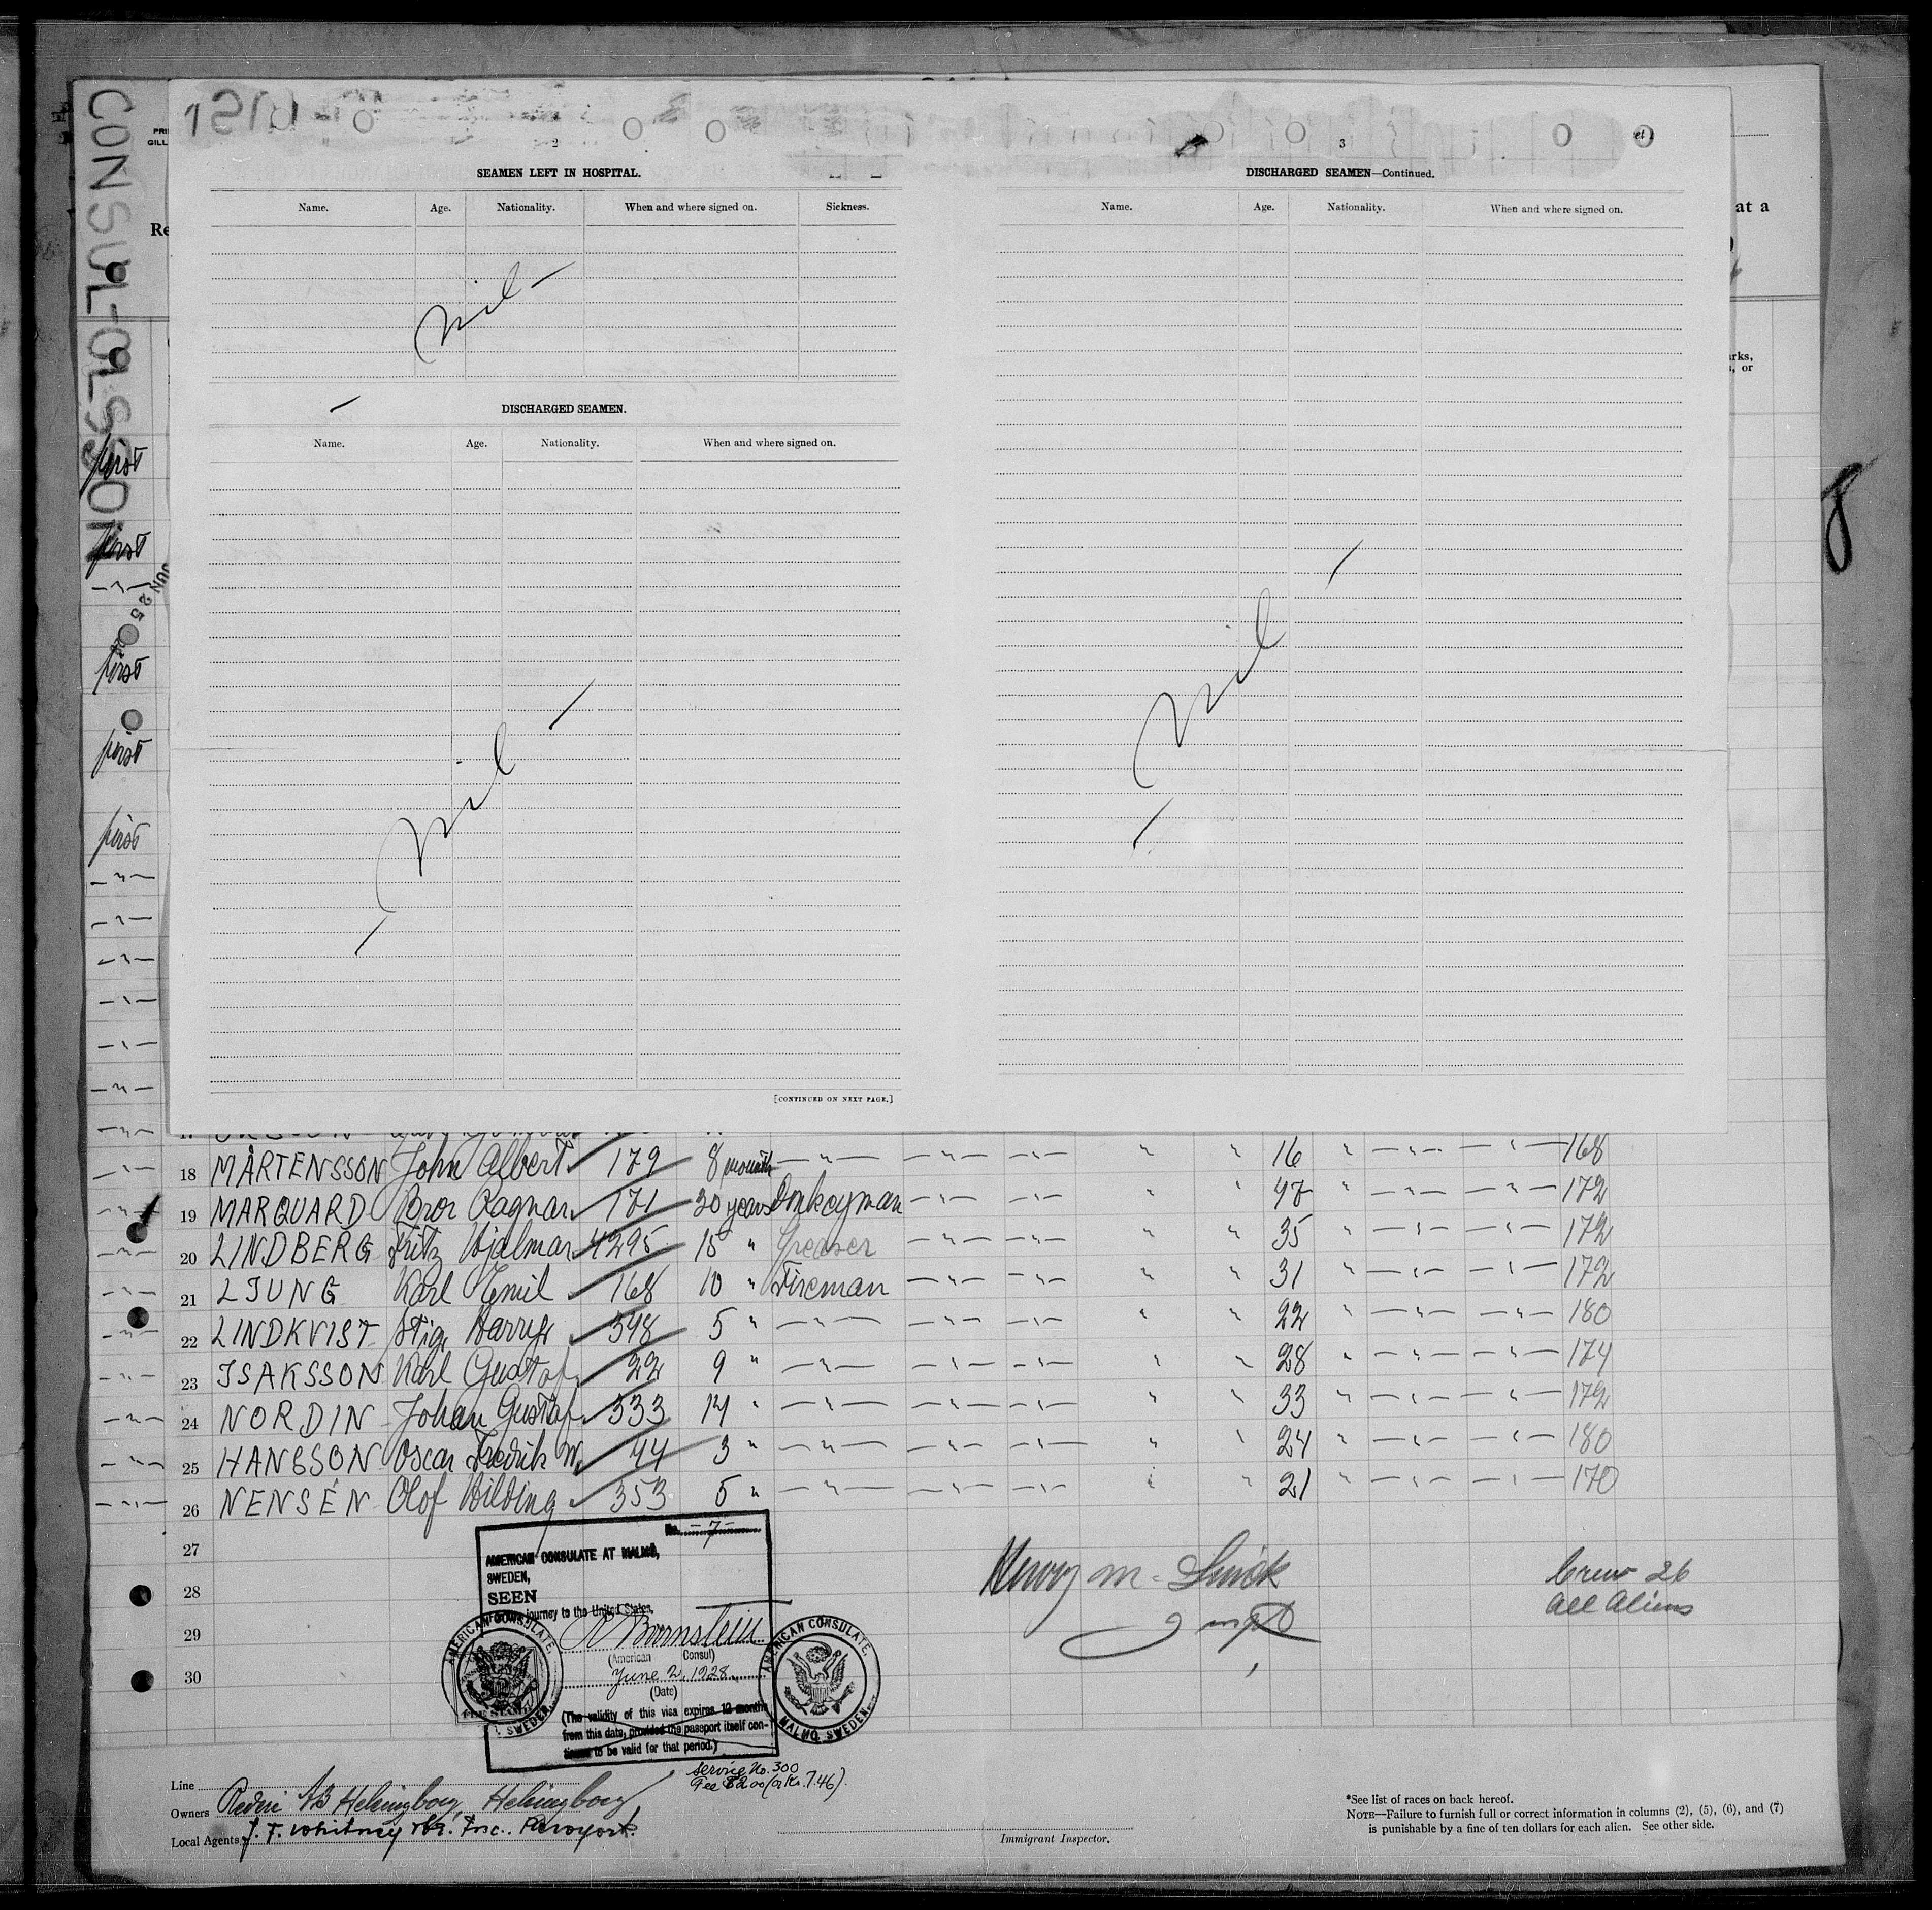 CONSUL-OLSSON
2
SEAMEN LEFT IN HOSPITAL.
Name. Age. Nationality. When and where signed on. Sickness.
nil -
DISCHARGED SEAMEN.
Name. Age. Nationality. When and where signed on.
- nil -
[CONTINUED ON NEXT PAGE.]
3
DISCHARGED SEAMEN—Continued.
Name. Age. Nationality. When and where signed on.
- nil -
at a
arks,
s, or
8
first
first
JUN 25
first
first
first
18 MÅRTENSSON John Albert 179 8 month —"— —"— —"— " " 16 " —"— —"— 168
19 MARQUARD Bror Ragnar 171 30 years Donkeyman —"— —"— " " 47 " —"— —"— 172
20 LINDBERG Fritz Hjalmar 4295 15 " Greaser —"— —"— " " 35 " —"— —"— 172
21 LJUNG Karl Emil 168 10 " Fireman —"— —"— " " 31 " —"— —"— 172
22 LINDKVIST Stig Harry 598 5 " —"— —"— —"— " " 22 " —"— —"— 180
23 ISAKSSON Karl Gustaf 22 9 " —"— —"— —"— " " 28 " —"— —"— 174
24 NORDIN Johan Gustaf 533 14 " —"— —"— —"— " " 33 " —"— —"— 172
25 HANSSON Oscar Fredrik W. 44 3 " —"— —"— —"— " " 24 " —"— —"— 180
26 NENSÉN Olof Hilding 353 5 " —"— —"— —"— " " 21 " —"— —"— 170
27
28
29
30
No. -7-
AMERICAN CONSULATE AT MALMÖ,
SWEDEN,
SEEN
journey to the United States.
Bornstein
(American Consul)
June 2, 1928
(Date)
(The validity of this visa expires 12 months
from this date, provided the passport itself con-
tinues to be valid for that period.)
AMERICAN CONSULATE.
SWEDEN.
AMERICAN CONSULATE.
MALMO, SWEDEN.
Service No. 300
Fee $2.00 (or Kr. 7.46).
Crew 26
all aliens
Line
Owners Rederi AB Helsingborg, Helsingborg
Local Agents J. F. Whitney Inc. Newyork.
Immigrant Inspector.
*See list of races on back hereof.
NOTE—Failure to furnish full or correct information in columns (2), (5), (6), and (7)
is punishable by a fine of ten dollars for each alien. See other side.